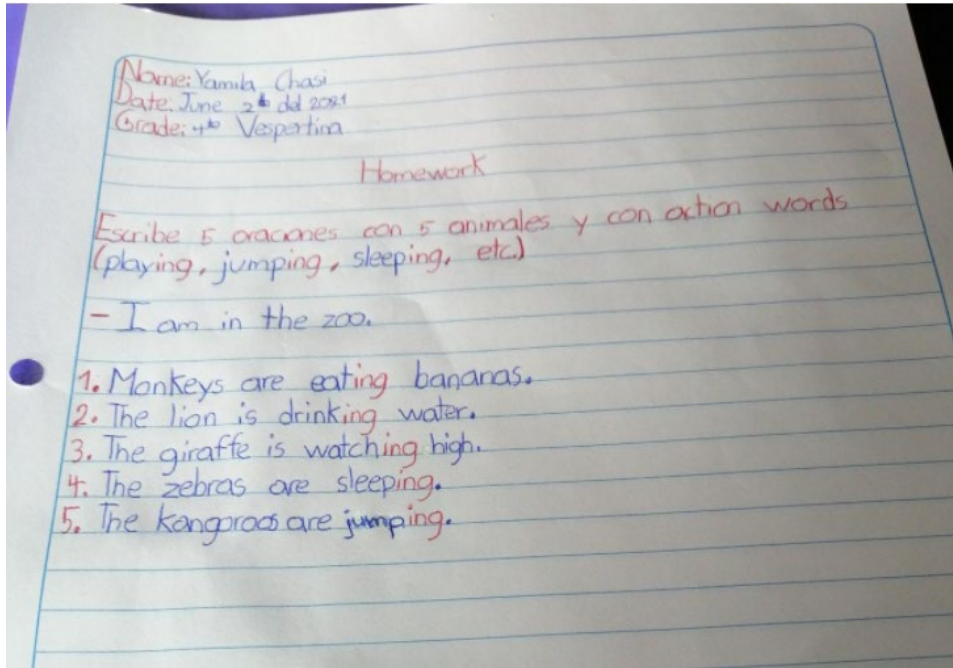 Name: Yamila Chasi
Date: June 2th del 2021
Grade: 4to Vespertina
Homework
Escribe 5 oraciones con 5 animales y con action words
(playing, jumping, sleeping, etc.)
- I am in the zoo.
1. Monkeys are eating bananas.
2. The lion is drinking water.
3. The giraffe is watching high.
4. The zebras are sleeping.
5. The kangoroos are jumping.